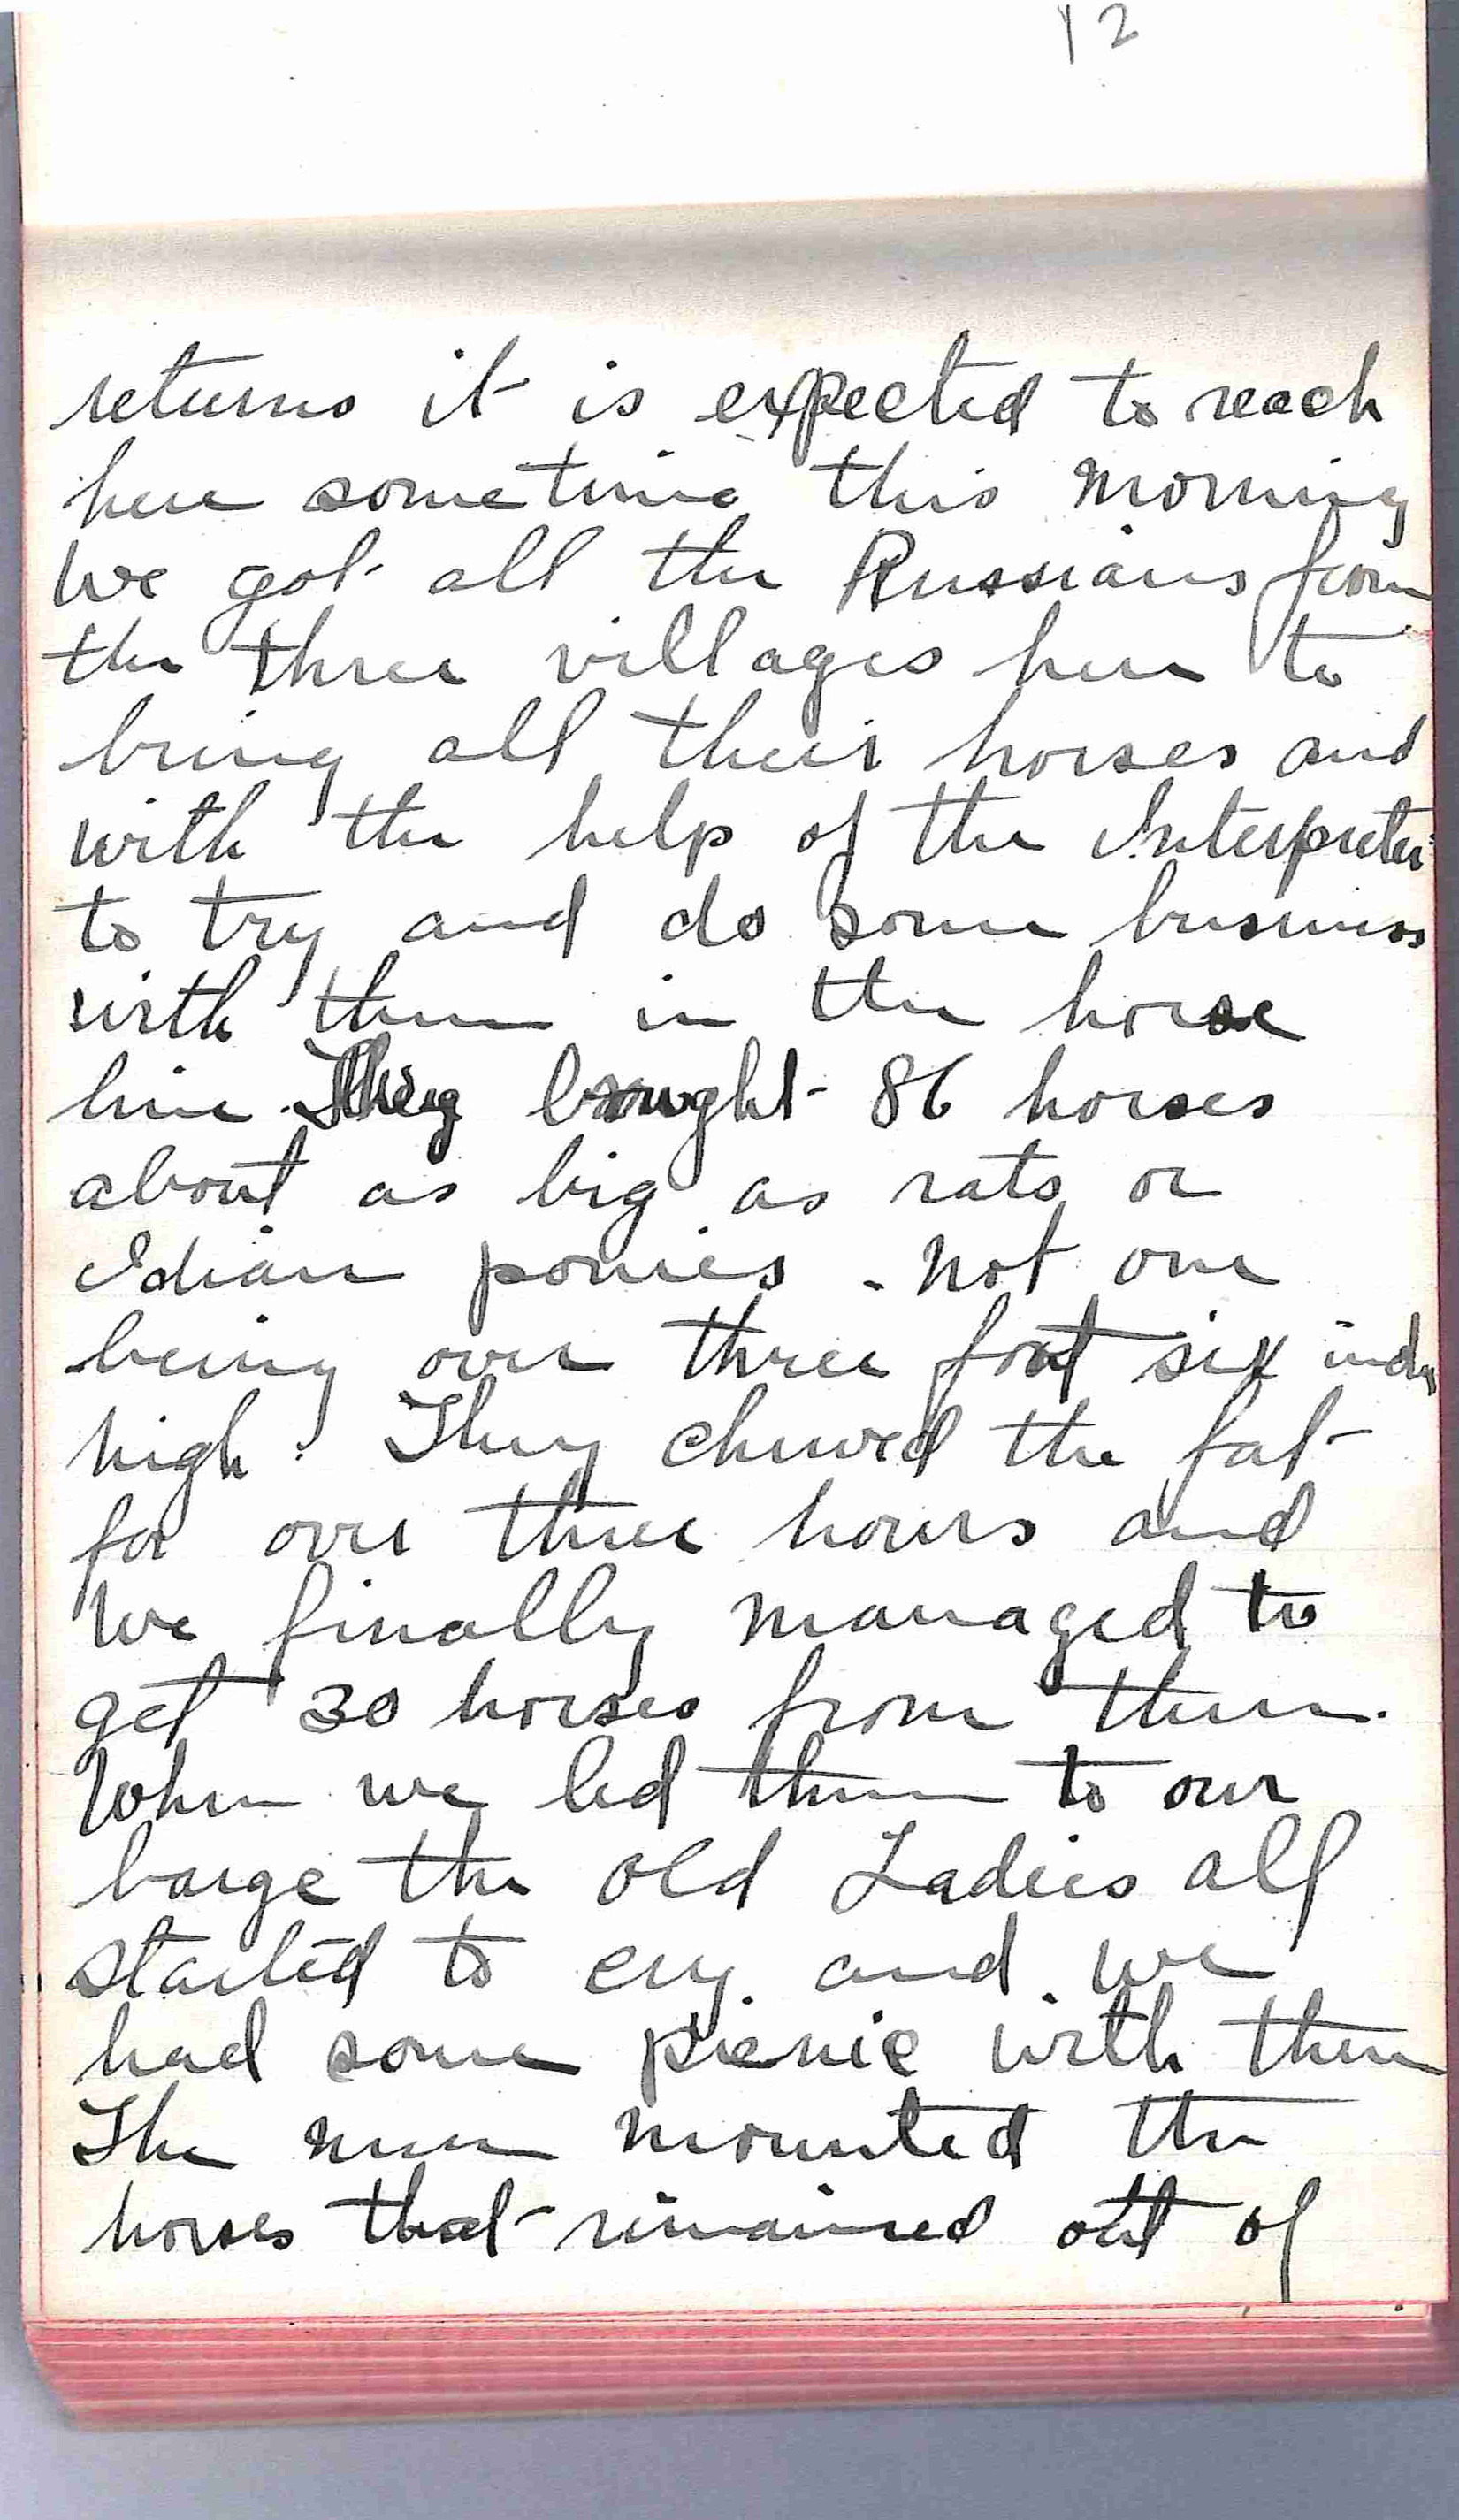 12
returns it is expected to reach
here sometime this morning
We got all the Russians from
the three villages here to
bring all their horses and
with the help of the Interpreter
to try and do some business
with them in the horse
line. They brought 86 horses
about as big as rats or
Idian ponies - not one
being over three foot six inches
high. They chewed the fat
for over three hours and
We finally managed to
get 30 horses from them.
When we led them to our
barge the old Ladies all
started to cry and we
had some picnic with them
The men mounted the
horses that remained out of